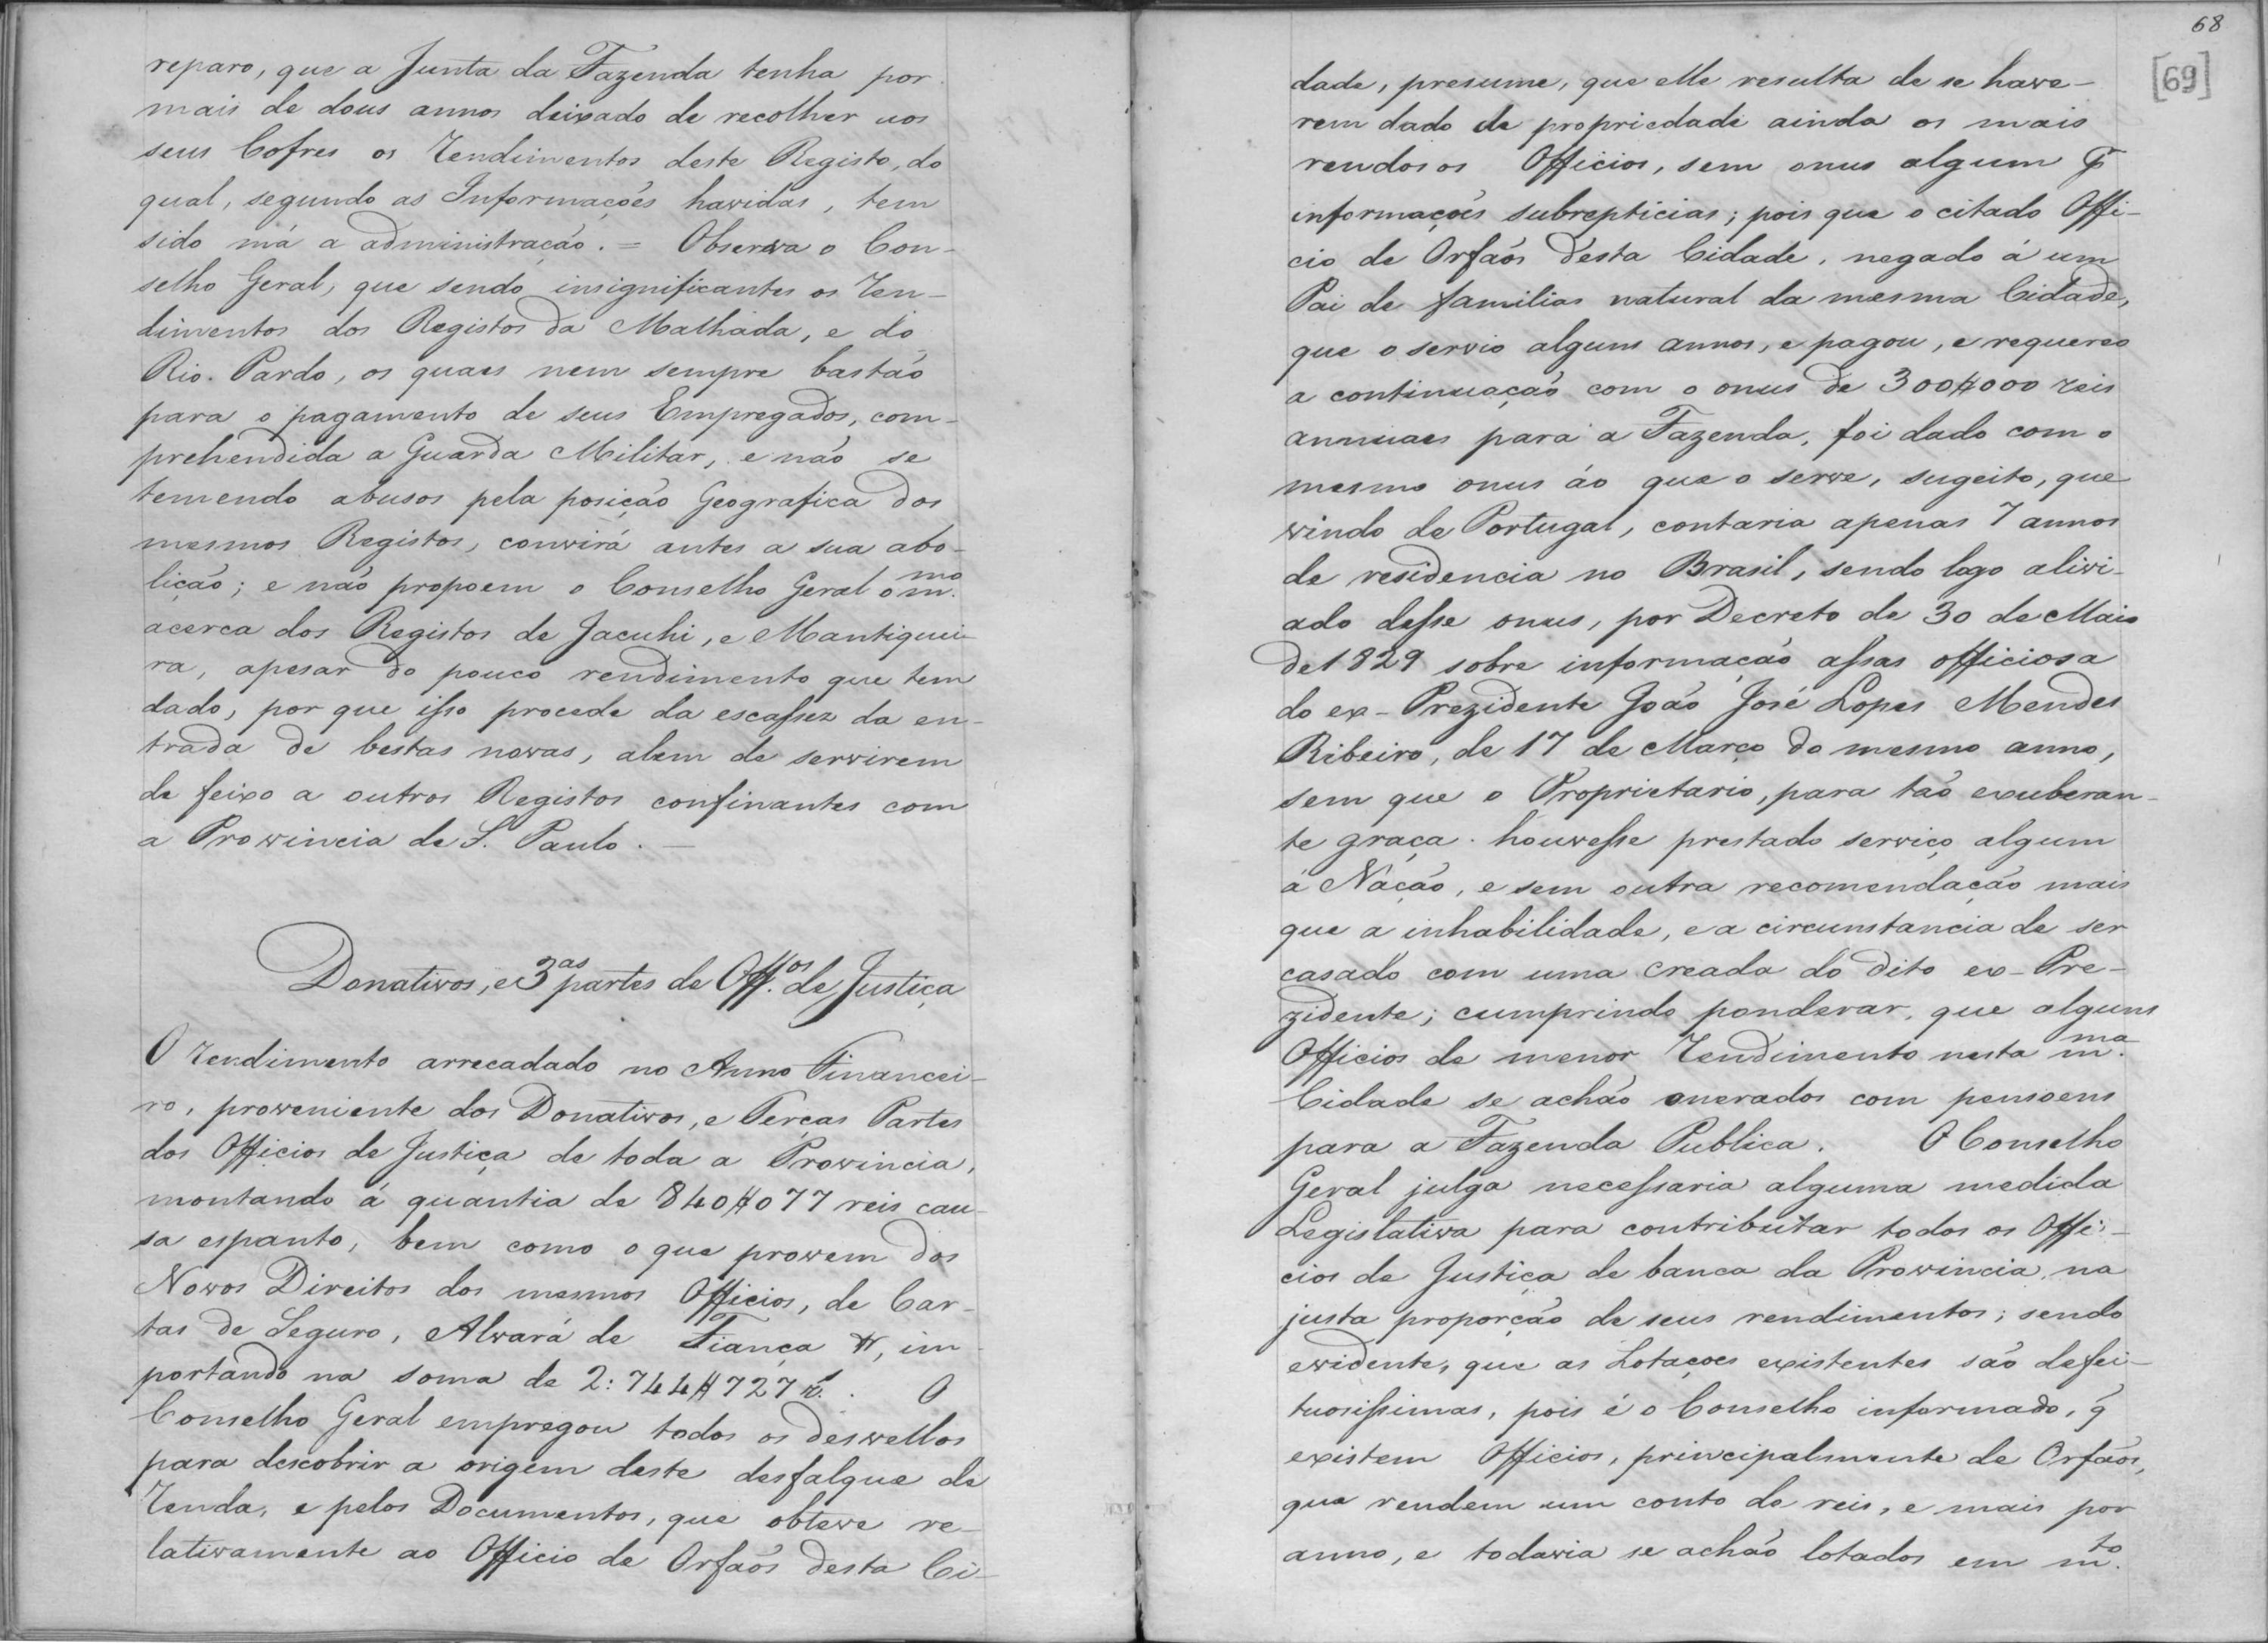 reparo, que a Junta da Fazenda tenha por
mais de dous annos deixado de recolher nos
seus Cofres os rendimentos deste Registo, do
qual, segundo as Informações havidas, tem
sido má a administração. = Observa o Con-
selho Geral, que sendo insignificantes os ren-
dimentos dos Registos da Malhada, e do
Rio Pardo, os quaes nem sempre bastão
para o pagamento de seus Empregados, com-
prehendida a Guarda Militar, e não se
temendo abusos pela posição Geografica dos
mesmos Registos, convirá antes a sua abo-
lição; e não propoem o Conselho Geral o m.mo
acerca dos Registos de Jacuhi, e Mantiquei-
ra, apesar do pouco rendimento que tem
dado, por que isso procede da escassez da en-
trada de bestas novas, alem de servirem
de feixo a outros Registos confinantes com
a Provincia de S. Paulo. —
Donativos, e 3as partes de Off.os de Justiça
O rendimento arrecadado no Anno Financei-
ro, proveniente dos Donativos, e Terças Partes
dos Officios de Justiça de toda a Provincia,
montando á quantia de 840$077 reis cau-
sa espanto, bem como o que provem dos
Novos Direitos dos mesmos Officios, de Car-
tas de Seguro, Alvará de Fiança &, im-
portando na soma de 2:744$727 rs. O
Conselho Geral empregou todos os desvellos
para descobrir a origem deste desfalque de
renda, e pelos Documentos, que obteve re-
lativamente ao Officio de Orfãos desta Ci-
68
[69]
dade, presume, que elle resulta de se have-
rem dado de propriedade ainda os mais
rendosos Officios, sem onus algum p
informações subrepticias; pois que o citado Offi-
cio de Orfãos desta Cidade, negado á um
Pai de familias natural da mesma Cidade,
que o servio alguns annos, e pagou, e requereo
a continuação com o onus de 300$000 reis
annuaes para a Fazenda, foi dado com o
mesmo onus áo que o serve, sugeito, que
vindo de Portugal, contaria apenas 7 annos
de residencia no Brasil, sendo logo alivi-
ado desse onus, por Decreto de 30 de Maio
de 1829 sobre informação assas officiosa
do ex-Prezidente João José Lopes Mendes
Ribeiro, de 17 de Março do mesmo anno,
sem que o Proprietario, para tão exuberan-
te graça houvesse prestado serviço algum
á Nação, e sem outra recomendação mais
que a inhabilidade, e a circunstancia de ser
casado com uma creada do dito ex-Pre-
zidente; cumprindo ponderar, que alguns
Officios de menor rendimento nesta m.ma
Cidade se achão onerados com pensoens
para a Fazenda Publica. O Conselho
Geral julga necessaria alguma medida
Legislativa para contributar todos os Offi-
cios de Justiça de banca da Provincia na
justa proporção de seus rendimentos; sendo
evidente, que as Lotaçoes existentes são defei-
tuosissimas, pois é o Conselho informado, q̃
existem Officios, principalmente de Orfãos,
que rendem um conto de reis, e mais por
anno, e todavia se achão lotados em m.to